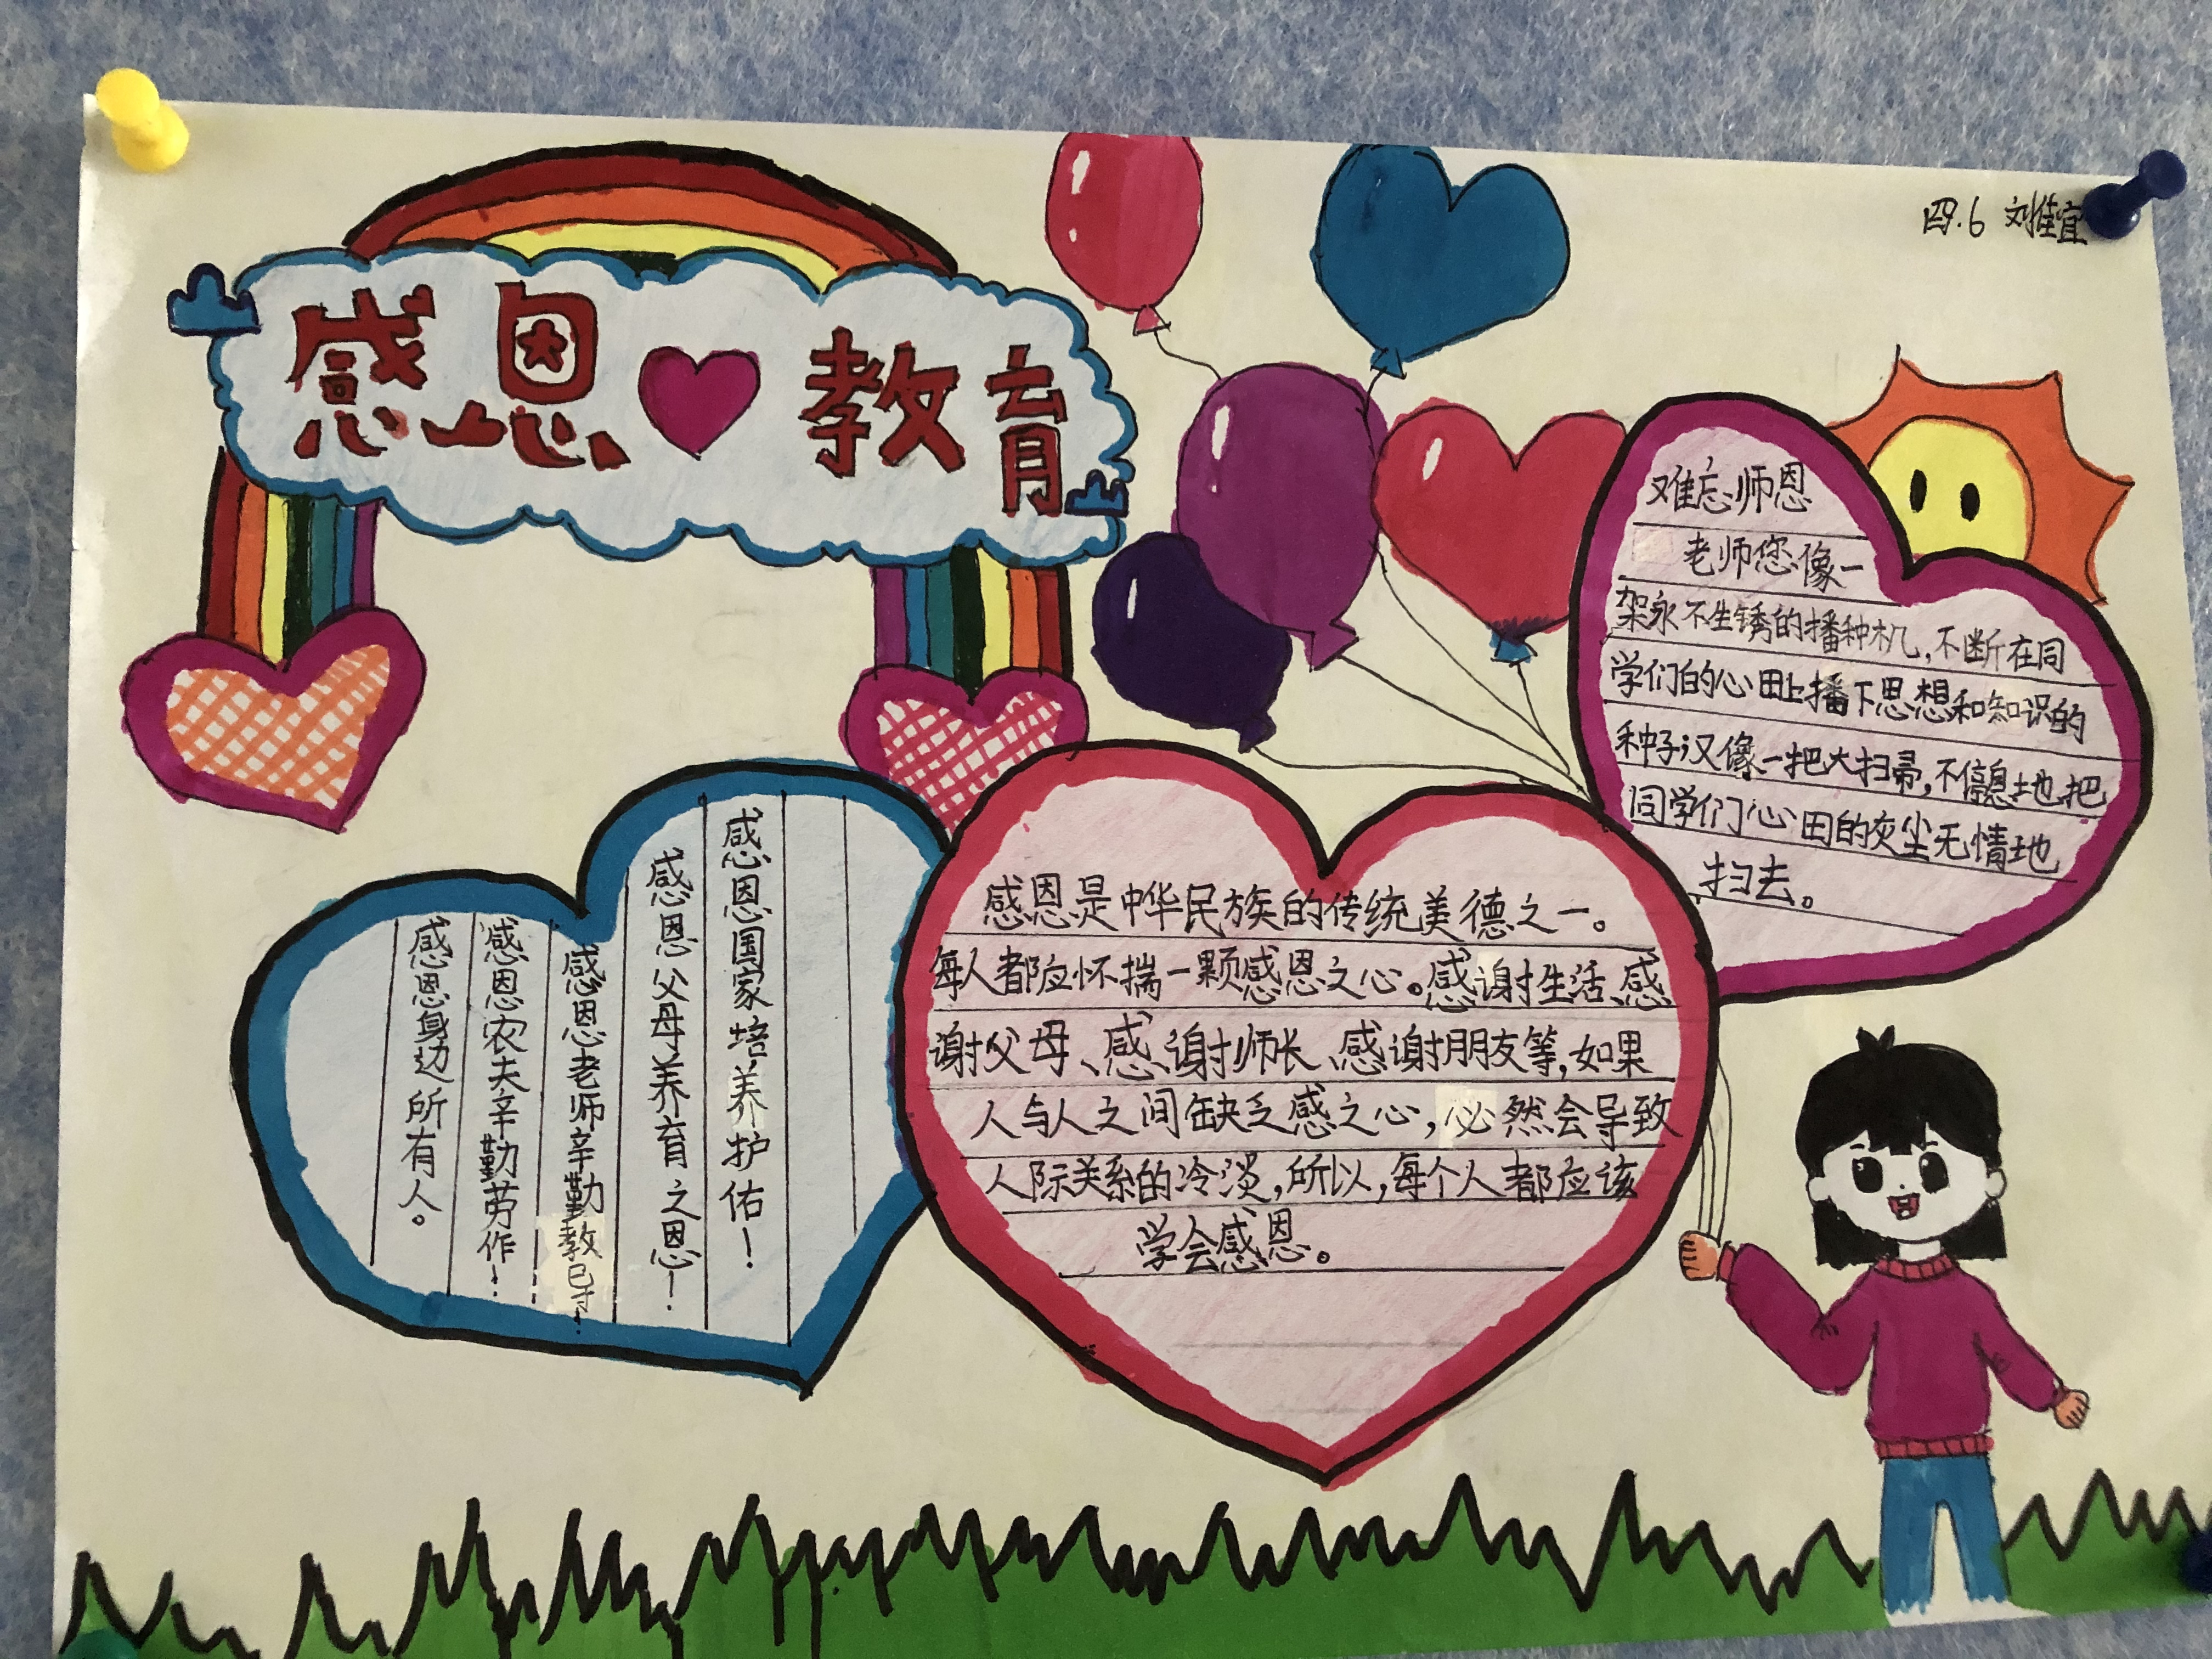 四.6 刘佳宜
感恩教育
难忘师恩
老师您像一
架永不生锈的播种机,不断在同
学们的心田上播下思想和知识的
种子汉像一把大扫帚,不信息地把
同学们心田的灰尘无情地
扫去。
感恩国家培养护佑!
感恩父母养育之恩!
感恩老师辛勤教导!
感恩农夫辛勤劳作!
感恩身边所有人。
感恩是中华民族的传统美德之一。
每人都应怀揣一颗感恩之心。感谢生活、感
谢父母、感谢师长、感谢朋友等,如果
人与人之间缺乏感之心,必然会导致
人际关系的冷淡,所以,每个人都应该
学会感恩。